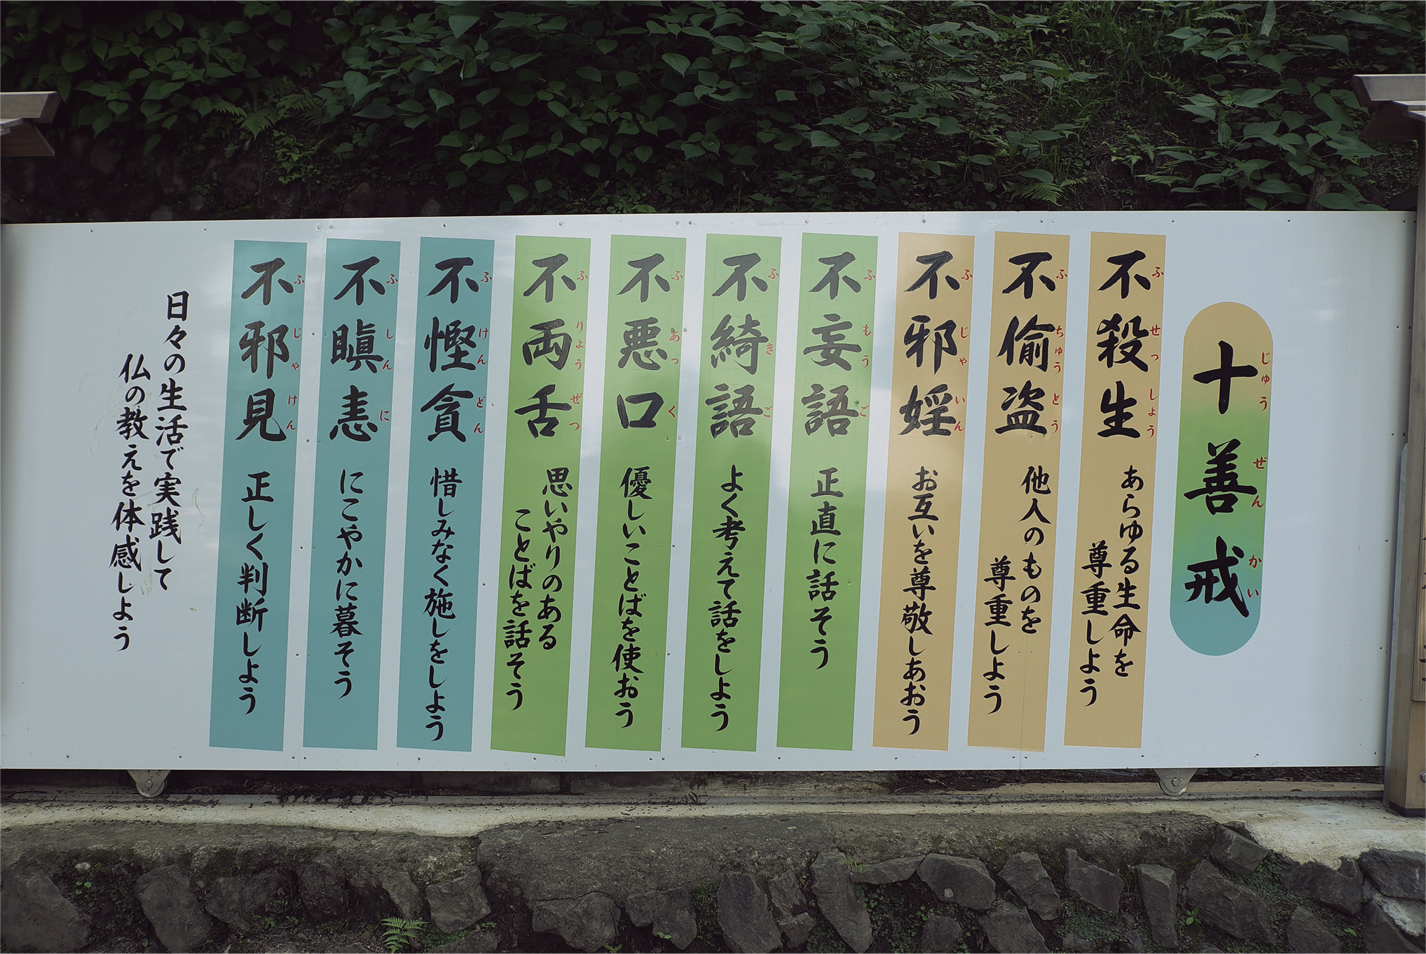 十善戒
じゅうぜんかい
不殺生
ふせっしょう
あらゆる生命を
尊重しよう
不偸盗
ふちゅうとう
他人のものを
尊重しよう
不邪婬
ふじゃいん
お互いを尊敬しあおう
不妄語
ふもうご
正直に話そう
不綺語
ふきご
よく考えて話をしよう
不悪口
ふあっく
優しいことばを使おう
不両舌
ふりょうぜつ
思いやりのある
ことばを話そう
不慳貪
ふけんどん
惜しみなく施しをしよう
不瞋恚
ふしんに
にこやかに暮そう
不邪見
ふじゃけん
正しく判断しよう
日々の生活で実践して
仏の教えを体感しよう